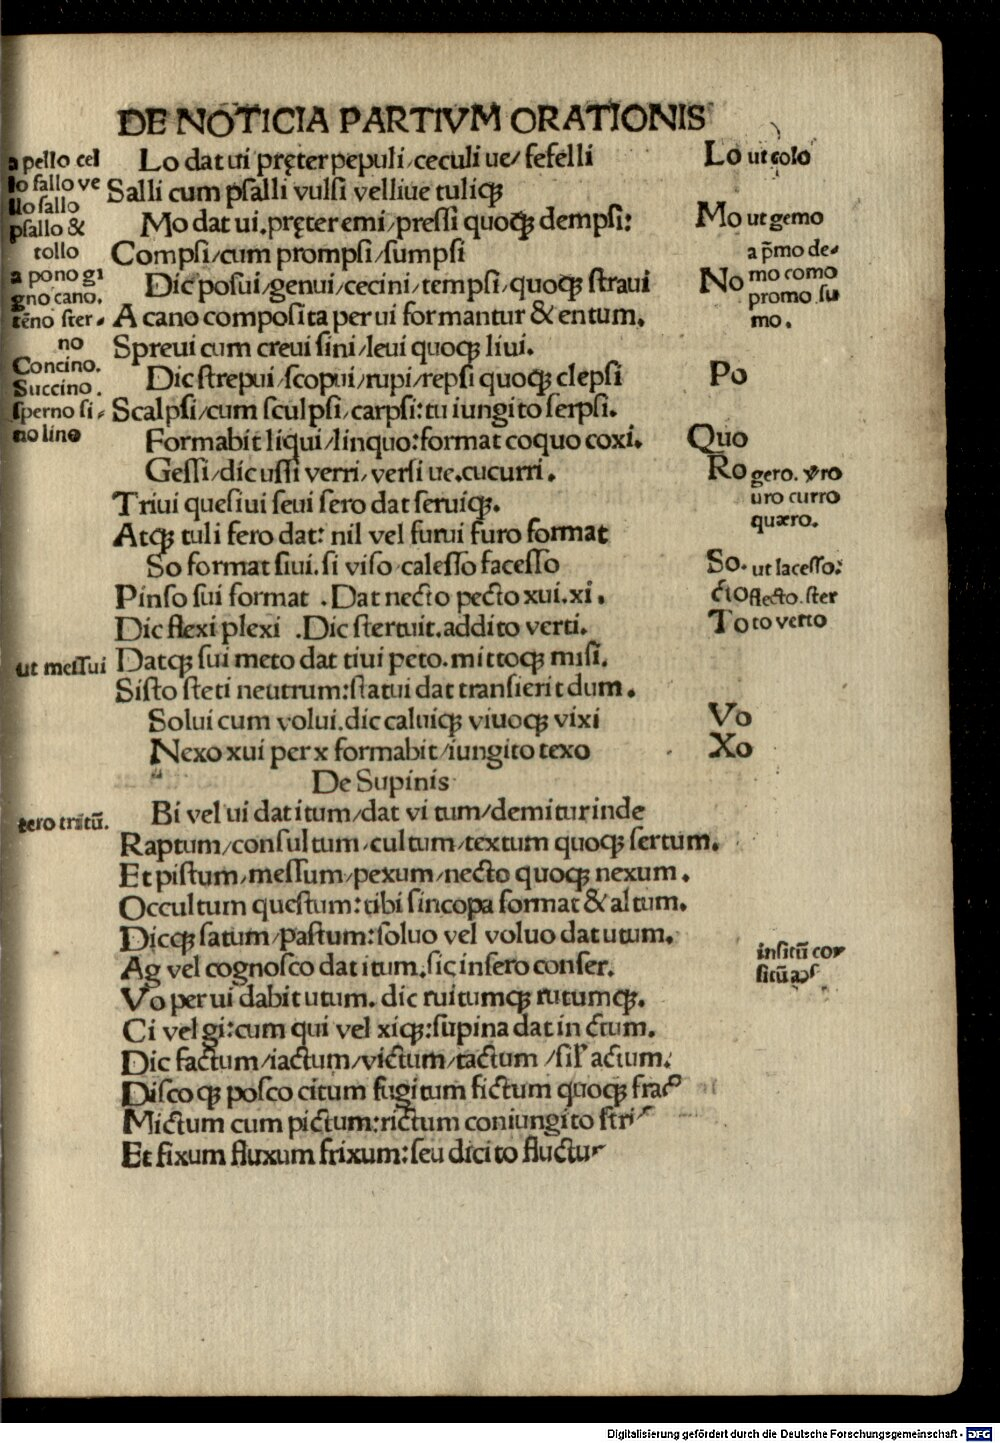 DE NOTICIA PARTIVM ORATIONIS
a pello cel
lo fallo ve
llo sallo
psallo &
tollo
a pono gi
gno cano.
tēno ster⸗
no
Concino.
Succino.
sperno si⸗
no lino
Lo dat ui pręter pepuli/ceculi ue/ fefelli
Salli cum psalli vulsi velliue tuliqꝫ
Mo dat ui.pręter emi/pressi quoqꝫ dempsi:
Compsi/cum prompsi/sumpsi
Dic posui/genui/cecini/tempsi/quoqꝫ straui
A cano composita per ui formantur & entum.
Spreui cum creui sini/leui quoqꝫ liui.
Dic strepui/scopui/rupi/repsi quoqꝫ clepsi
Scalpsi/cum sculpsi/carpsi:tu iungito serpsi.
Formabit liqui/linquo:format coquo coxi.
Gessi/dic ussi verri/versi ue.cucurri.
Triui quesiui seui sero dat seruiqꝫ.
Atqꝫ tuli fero dat: nil vel furui furo format
So format siui.si viso calesso facesso
Pinso sui format .Dat necto pecto xui.xi.
Dic flexi plexi .Dic stertuit.addito verti.
ut messui
Datqꝫ sui meto dat tiui peto.mittoqꝫ misi.
Sisto steti neutrum:statui dat transierit dum.
Solui cum volui.dic caluiqꝫ viuoqꝫ vixi
Nexo xui per x formabit/iungito texo
Lo ut colo
Mo ut gemo
a p̄mo de⸗
No mo como
promo su
mo.
Po
Quo
Ro gero. v̕ro
uro curro
quæro.
So. ut lacesso:
cto flecto. ster
To to verto
Vo
Xo
De Supinis
tero tritū.
Bi vel ui dat itum/dat vi tum/demitur inde
Raptum/consultum/cultum/textum quoqꝫ sertum.
Et pistum/messum/pexum/necto quoqꝫ nexum.
Occultum questum:tibi sincopa format & altum.
Dicqꝫ satum/pastum:soluo vel voluo dat utum.
Ag vel cognosco dat itum.sic insero conser.
insitū cor
sitū
Vo per ui dabit utum. dic ruitumqꝫ rutumqꝫ.
Ci vel gi:cum qui vel xiqꝫ:supina dat in ctum.
Dic factum/iactum/victum/tactum /sil' actum:
Disco qꝫ posco citum fugitum fictum quoqꝫ frac
Mictum cum pictum:rictum coniungito stri
Et fixum fluxum frixum:seu dicito fluctu
Digitalisierung gefördert durch die Deutsche Forschungsgemeinschaft - DFG